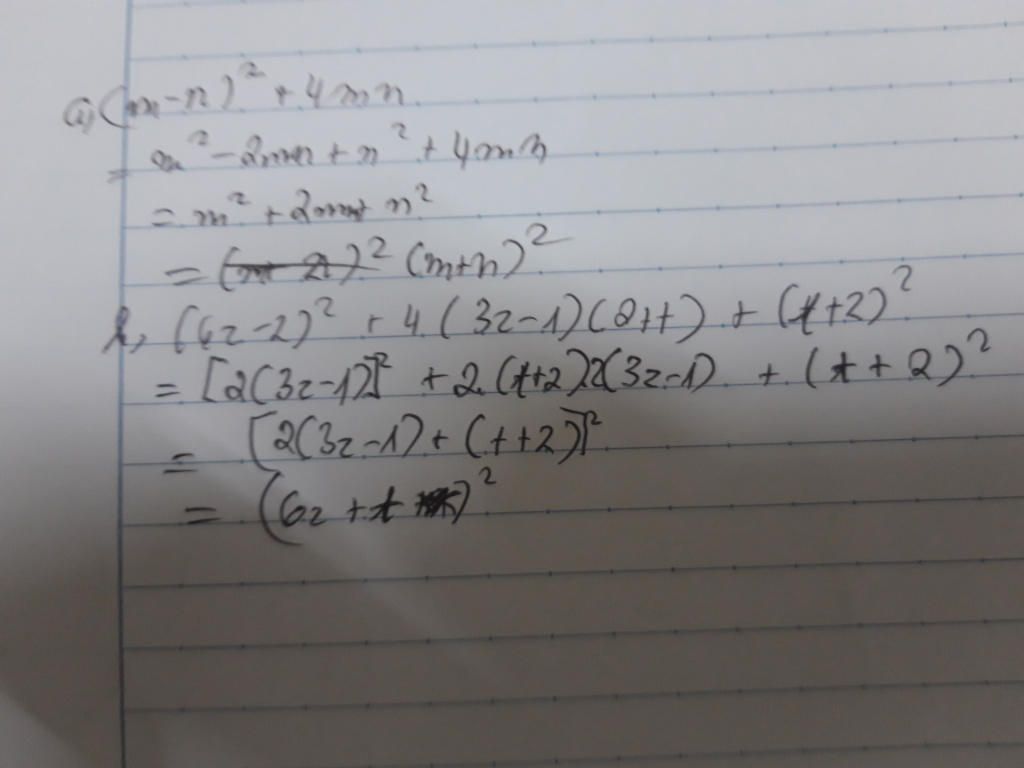 a, (m-n)² + 4mn
= m² - 2mn + n² + 4mn
= m² + 2mn + n²
= (m+n)²
b, (6z-2)² + 4(3z-1)(2+t) + (t+2)²
= [2(3z-1)]² + 2.(t+2)2(3z-1) + (t+2)²
= [2(3z-1)+(t+2)]²
= (6z+t)²